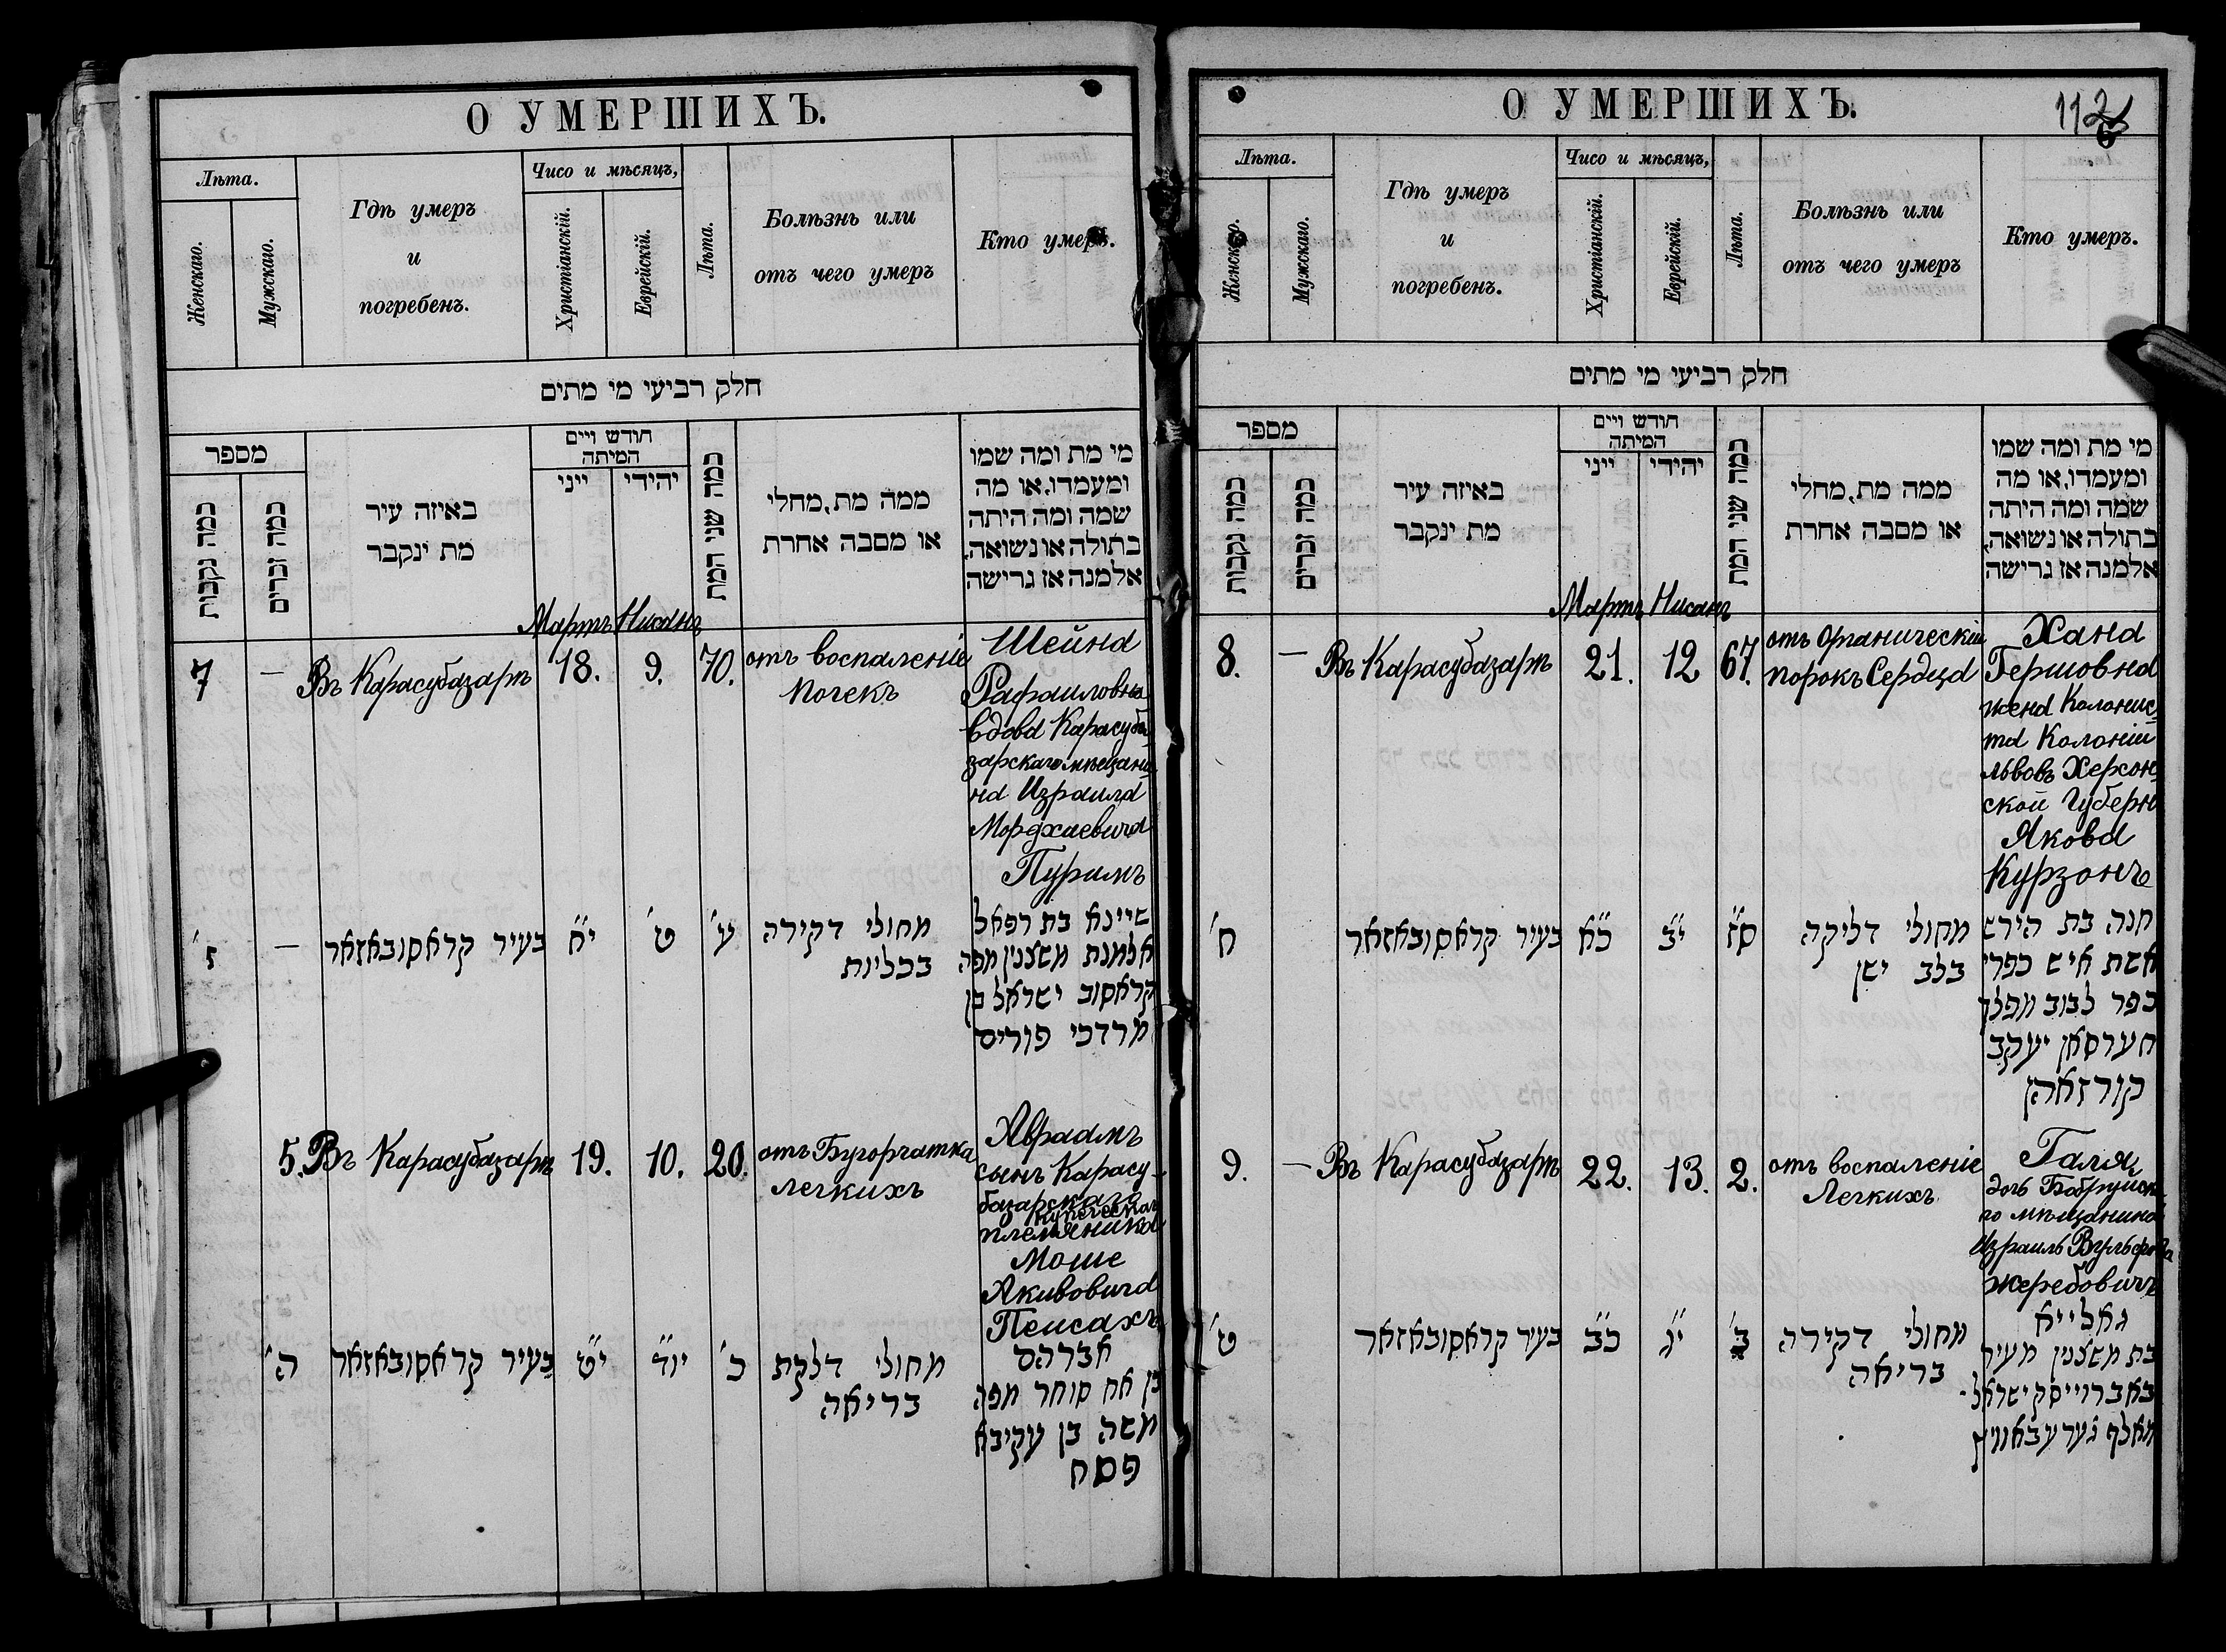 О УМЕРШИХЪ.
Лѣта.
Женскаго.
Мужскаго.
Гдѣ умеръ
и
погребенъ.
Чисо и мѣсяцъ,
Христіанскій.
Еврейскій.
Лѣта.
Болѣзнь или
отъ чего умеръ
Кто умеръ.
חלק רביעי מי מתים
מספר
כמה נקבות
כמה זכרים
באיזה עיר
מת ינקבר
חודש ויים
המיתה
ייני
יהידי
כמה שני המת
ממה מת, מחלי
או מסבה אחרת
מי מת ומה שמו
ומעמדו, או מה
שמה ומה היתה
בתולה או נשואה,
אלמנה אז גרישה
Мартъ Нисанъ
7 — Въ Карасубазарѣ 18. 9. 70. отъ воспаленіе
почекъ
Шейна
Рафаиловна
вдова Карасуба
зарскаго мѣщани
на Израила
Мордхаевича
Пуримъ
ז' — בעיר קראסובאזאר י"ח ט' ע' מחולי דקירה
בכליות
שיינא בת רפאל
אלמנת משצנין מפה
קראסוב ישראל בן
מרדכי פורים
5. Въ Карасубазарѣ 19. 10. 20. отъ Бугорчатка
легкихъ
Авраамъ
сынъ Карасу-
базарскаго
купеческаго
племяника
Моше
Акивовича
Пейсахъ
ה' בעיר קראסובאזאר י"ט יו"ד כ' מחולי דלקת
בריאה
אברהם
בן אח סוחר מפה
משה בן עקיבא
פסח
О УМЕРШИХЪ.
112
Лѣта.
Женскаго.
Мужскаго.
Гдѣ умеръ
и
погребенъ.
Чисо и мѣсяцъ,
Христіанскій.
Еврейскій.
Лѣта.
Болѣзнь или
отъ чего умеръ
Кто умеръ.
חלק רביעי מי מתים
מספר
כמה נקבות
כמה זכרים
באיזה עיר
מת ינקבר
חודש ויים
המיתה
ייני
יהידי
כמה שני המת
ממה מת, מחלי
או מסבה אחרת
מי מת ומה שמו
ומעמדו, או מה
שמה ומה היתה
בתולה או נשואה,
אלמנה אז גרישה
Мартъ Нисанъ
8. — Въ Карасубазарѣ 21. 12 67. отъ Органическій
порокъ Сердца
Хана
Гершовна
жена Колонис
та Колоніи
Львовъ Херсон
ской Губерн
Якова
Курзонъ
ח' בעיר קראסובאזאר כ"א י"ב ס"ז מחולי דליקה
בלב ישן
חנה בת הירש
אשת איש כפרי
כפר לבוב מפלך
חערסאן יעקב
קורזאהן
9. — Въ Карасубазарѣ 22. 13. 2. отъ воспаленіе
Легкихъ
Галя,
дочь Бобруйска
го мѣщанина
Израиль Вульфова
Жеребовичъ
ט' בעיר קראסובאזאר כ"ב י"ג ב' מחולי דקירה
בריאה
גאלייא
בת משצנין מעיר
באברוייסק ישראל
וואלף